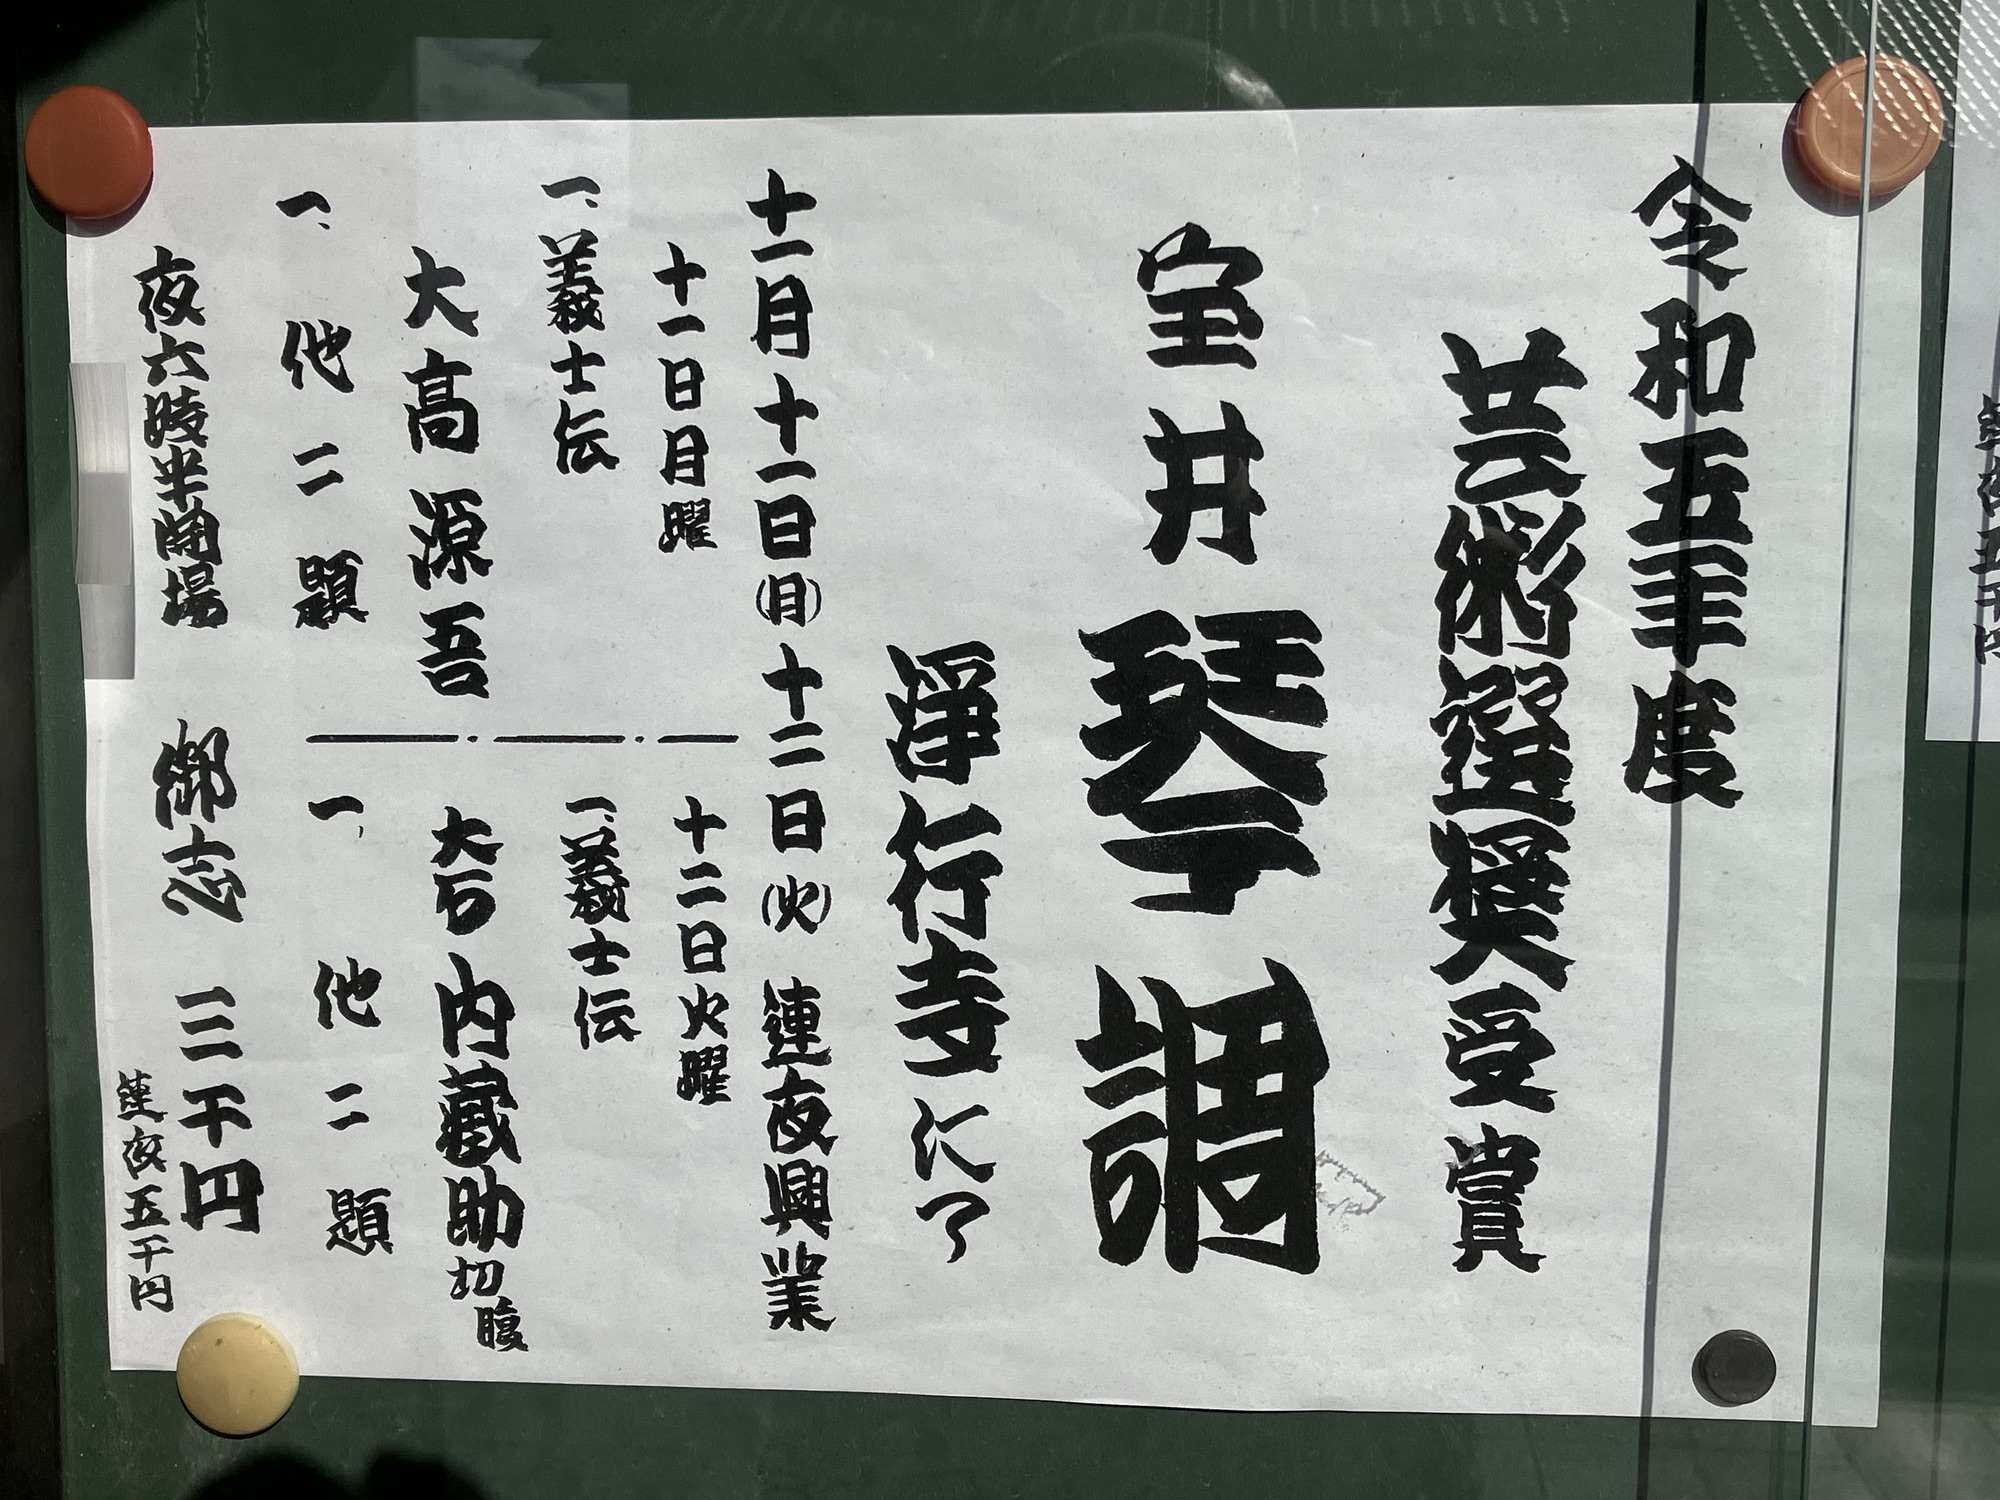 令和五年度
芸術選奨受賞
宝井琴調
淨行寺にて
十一月十一日(月)十二日(火)連夜興業
十一日月曜
一、義士伝
大高源吾
一、他二題
十二日火曜
一、義士伝
大石内蔵助切腹
一、他二題
夜六時半開場 御志 三千円
連夜五千円